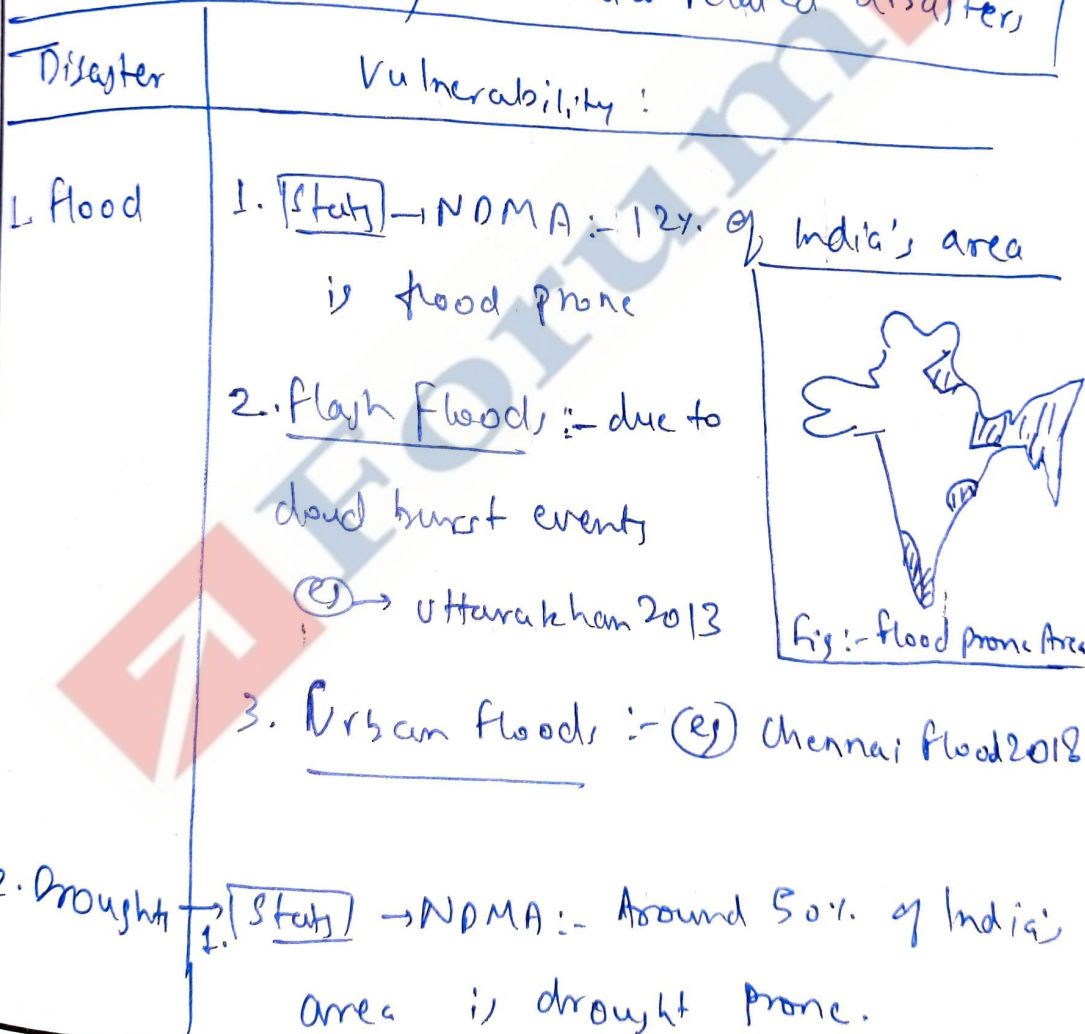 related disasters
Disaster Vulnerability :
1. flood 1. Stats → NDMA :- 12% of India's area
is flood prone
2. flash floods :- due to
cloud burst events
eg → Uttarakhan 2013
fig :- flood prone Area
3. Urban floods :- eg Chennai flood 2018
2. Droughts → 1. Stats → NDMA :- Around 50% of India's
area is drought prone.
Forum